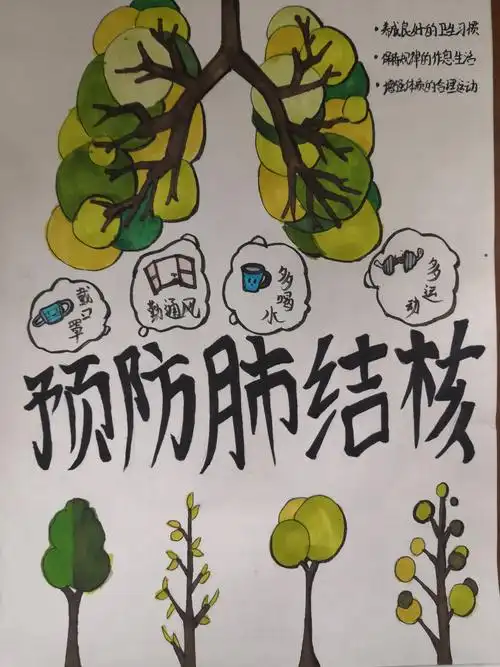 • 养成良好的卫生习惯
• 保持规律的作息生活
• 增强体质的合理运动
戴口罩
勤通风
多喝水
多运动
预防肺结核